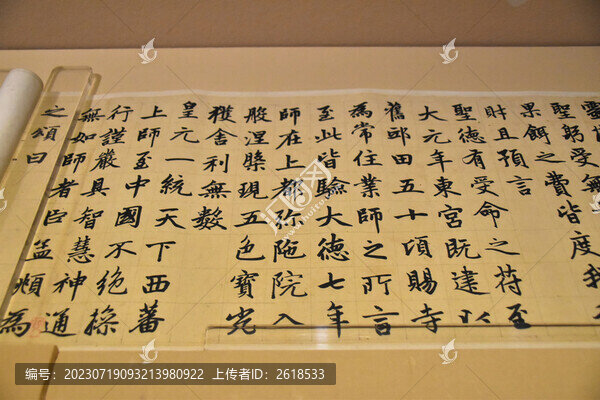 聖躬受無
果餌之費皆度我
財且預言
聖德有受命之符至
大元年東宮既建以
舊邸田五十頃賜寺
為常住業師之所言
至此皆驗大德七年
師在上都彌陁院入
般涅槃現五色寶光
獲舍利無數
皇元一統天下西蕃
上師至中國不絕操
行謹嚴具智慧神通
無如師者臣孟頫為
之頌曰
编号：20230719093213980922 上传者ID：2618533